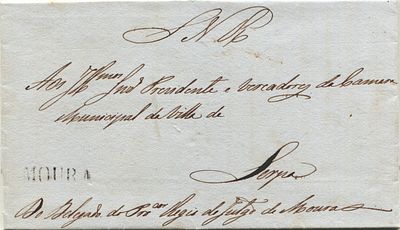 S N R
Aos Illmos Snrs Presidente e Vereadores da Camera
Municipal da Villa de
MOURA
Serpa
Do Delegado do Pror Regio do Julgo de Moura